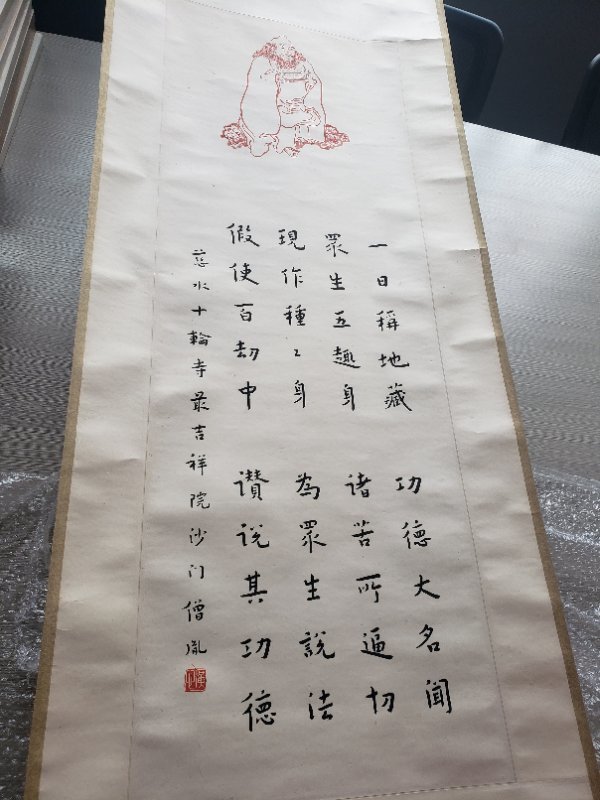 一日稱地藏 功德大名聞
眾生五趣身 诸苦所逼切
現作種〻身 為眾生説法
假使百劫中 讚説其功德
慈水十輪寺最吉祥院沙门僧胤